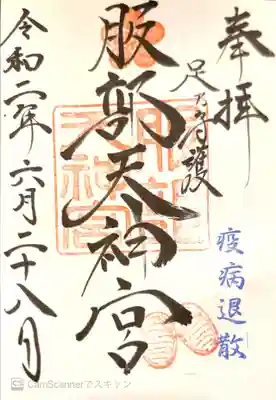 奉拝
疫病退散
足乃守護
服部天神宮
令和二年六月二十八日
CS CamScannerでスキャン